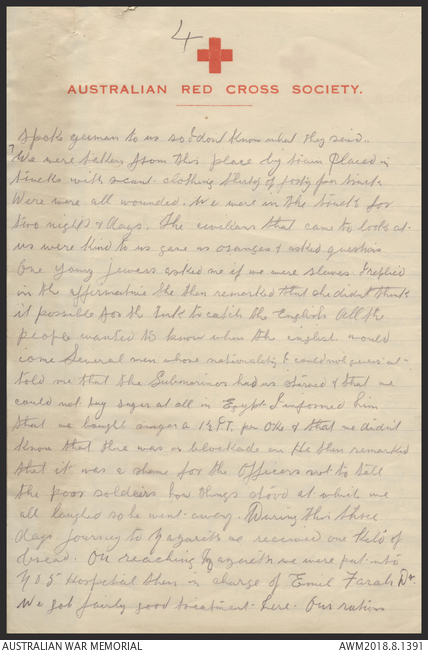 4
AUSTRALIAN RED CROSS SOCIETY.
spoke german to us so I dont know what they said..
We were taken from this place by train placed in
trucks with scant clothing thirty of forty per truck
Were were all wounded. We were in the trucks for
two nights & days. The civilians that came to look at
us were kind to us gave us oranges & asked questions
One young Jewess asked me if we were slaves I replied
in the affirmative She then remarked that she didnt think
it possible for the Turk to catch the English All the
people wanted to know when the english would
come Several men whose nationality I could not guess at
told me that the Submarines had us starved & that we
could not buy sugar at all in Egypt I informed him
that we bought sugar a 1½ PT. per Oke & that we didn't
know that there was a blockade on He then remarked
that it was a shame for the Officers not to tell
the poor soldeirs how things stood at which we
all laughed so he went away. During this three
days journey to Nazareth we received one Kilo of
bread. On reaching Nazareth we were put into
Hospital then in charge of Emil Farah Dr.
We got fairly good treatment here. Our rations
AUSTRALIAN WAR MEMORIAL
AWM2018.8.1391